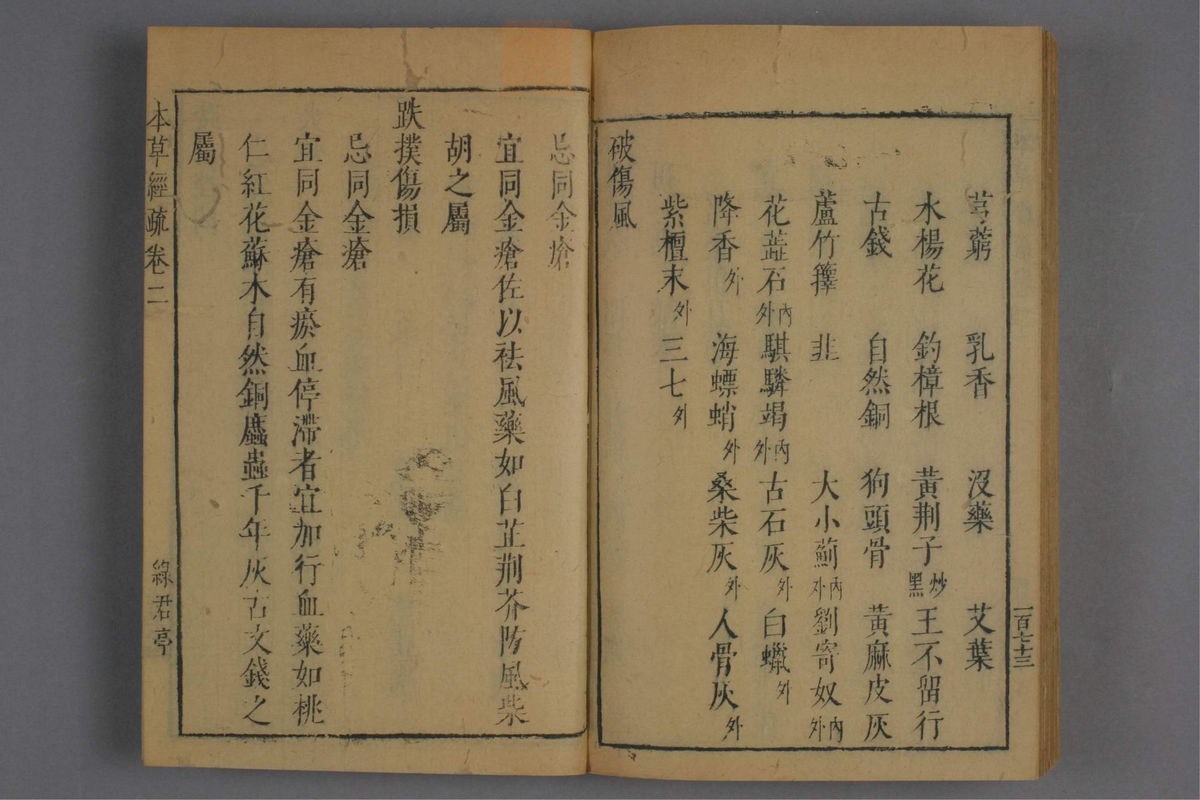 芎藭　乳香　沒藥　艾葉
水楊花　釣樟根　黃荆子炒黑　王不留行
古錢　自然銅　狗頭骨　黃麻皮灰
蘆竹籜　韭　大小薊內外　劉寄奴內外
花蕋石內外　騏驎竭內外　古石灰外　白蠟外
降香外　海螵蛸外　桑柴灰外　人骨灰外
紫檀末外　三七外
破傷風
一百七十三
忌同金瘡
宜同金瘡佐以祛風藥如白芷荆芥防風柴
胡之屬
跌撲傷損
忌同金瘡
宜同金瘡有瘀血停滯者宜加行血藥如桃
仁紅花蘇木自然銅䗪蟲千年灰古文錢之
屬
本草經疏卷二
綠君亭